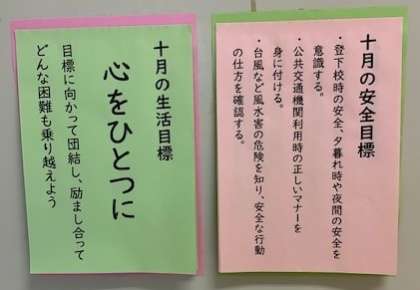 十月の安全目標
・登下校時の安全、夕暮れ時や夜間の安全を
意識する。
・公共交通機関利用時の正しいマナーを
身に付ける。
・台風など風水害の危険を知り、安全な行動
の仕方を確認する。
十月の生活目標
心をひとつに
目標に向かって団結し、励まし合って
どんな困難も乗り越えよう